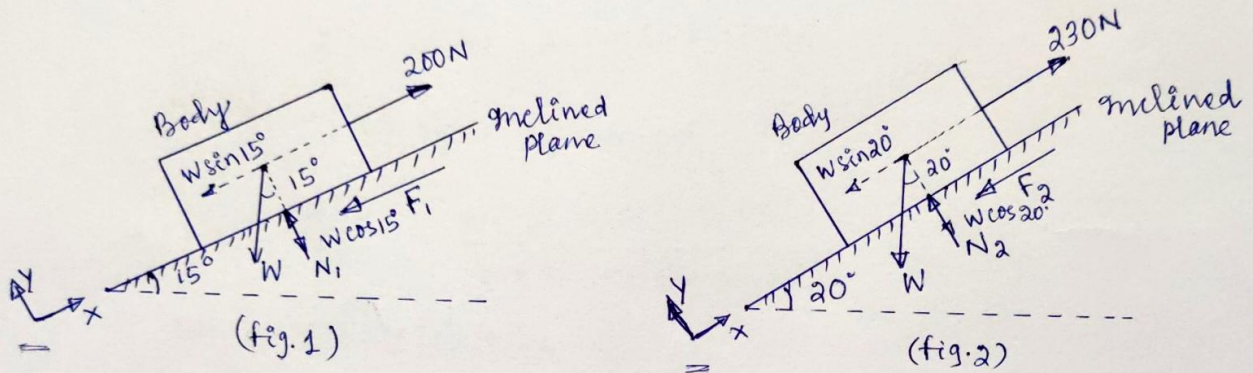 200N
Body
Inclined
plane
Wsin15°
15°
F₁
Wcos15°
W
N₁
15°
Y
X
(fig. 1)
230N
Body
Inclined
plane
Wsin20°
20°
F₂
Wcos20°
N₂
W
20°
Y
X
(fig. 2)